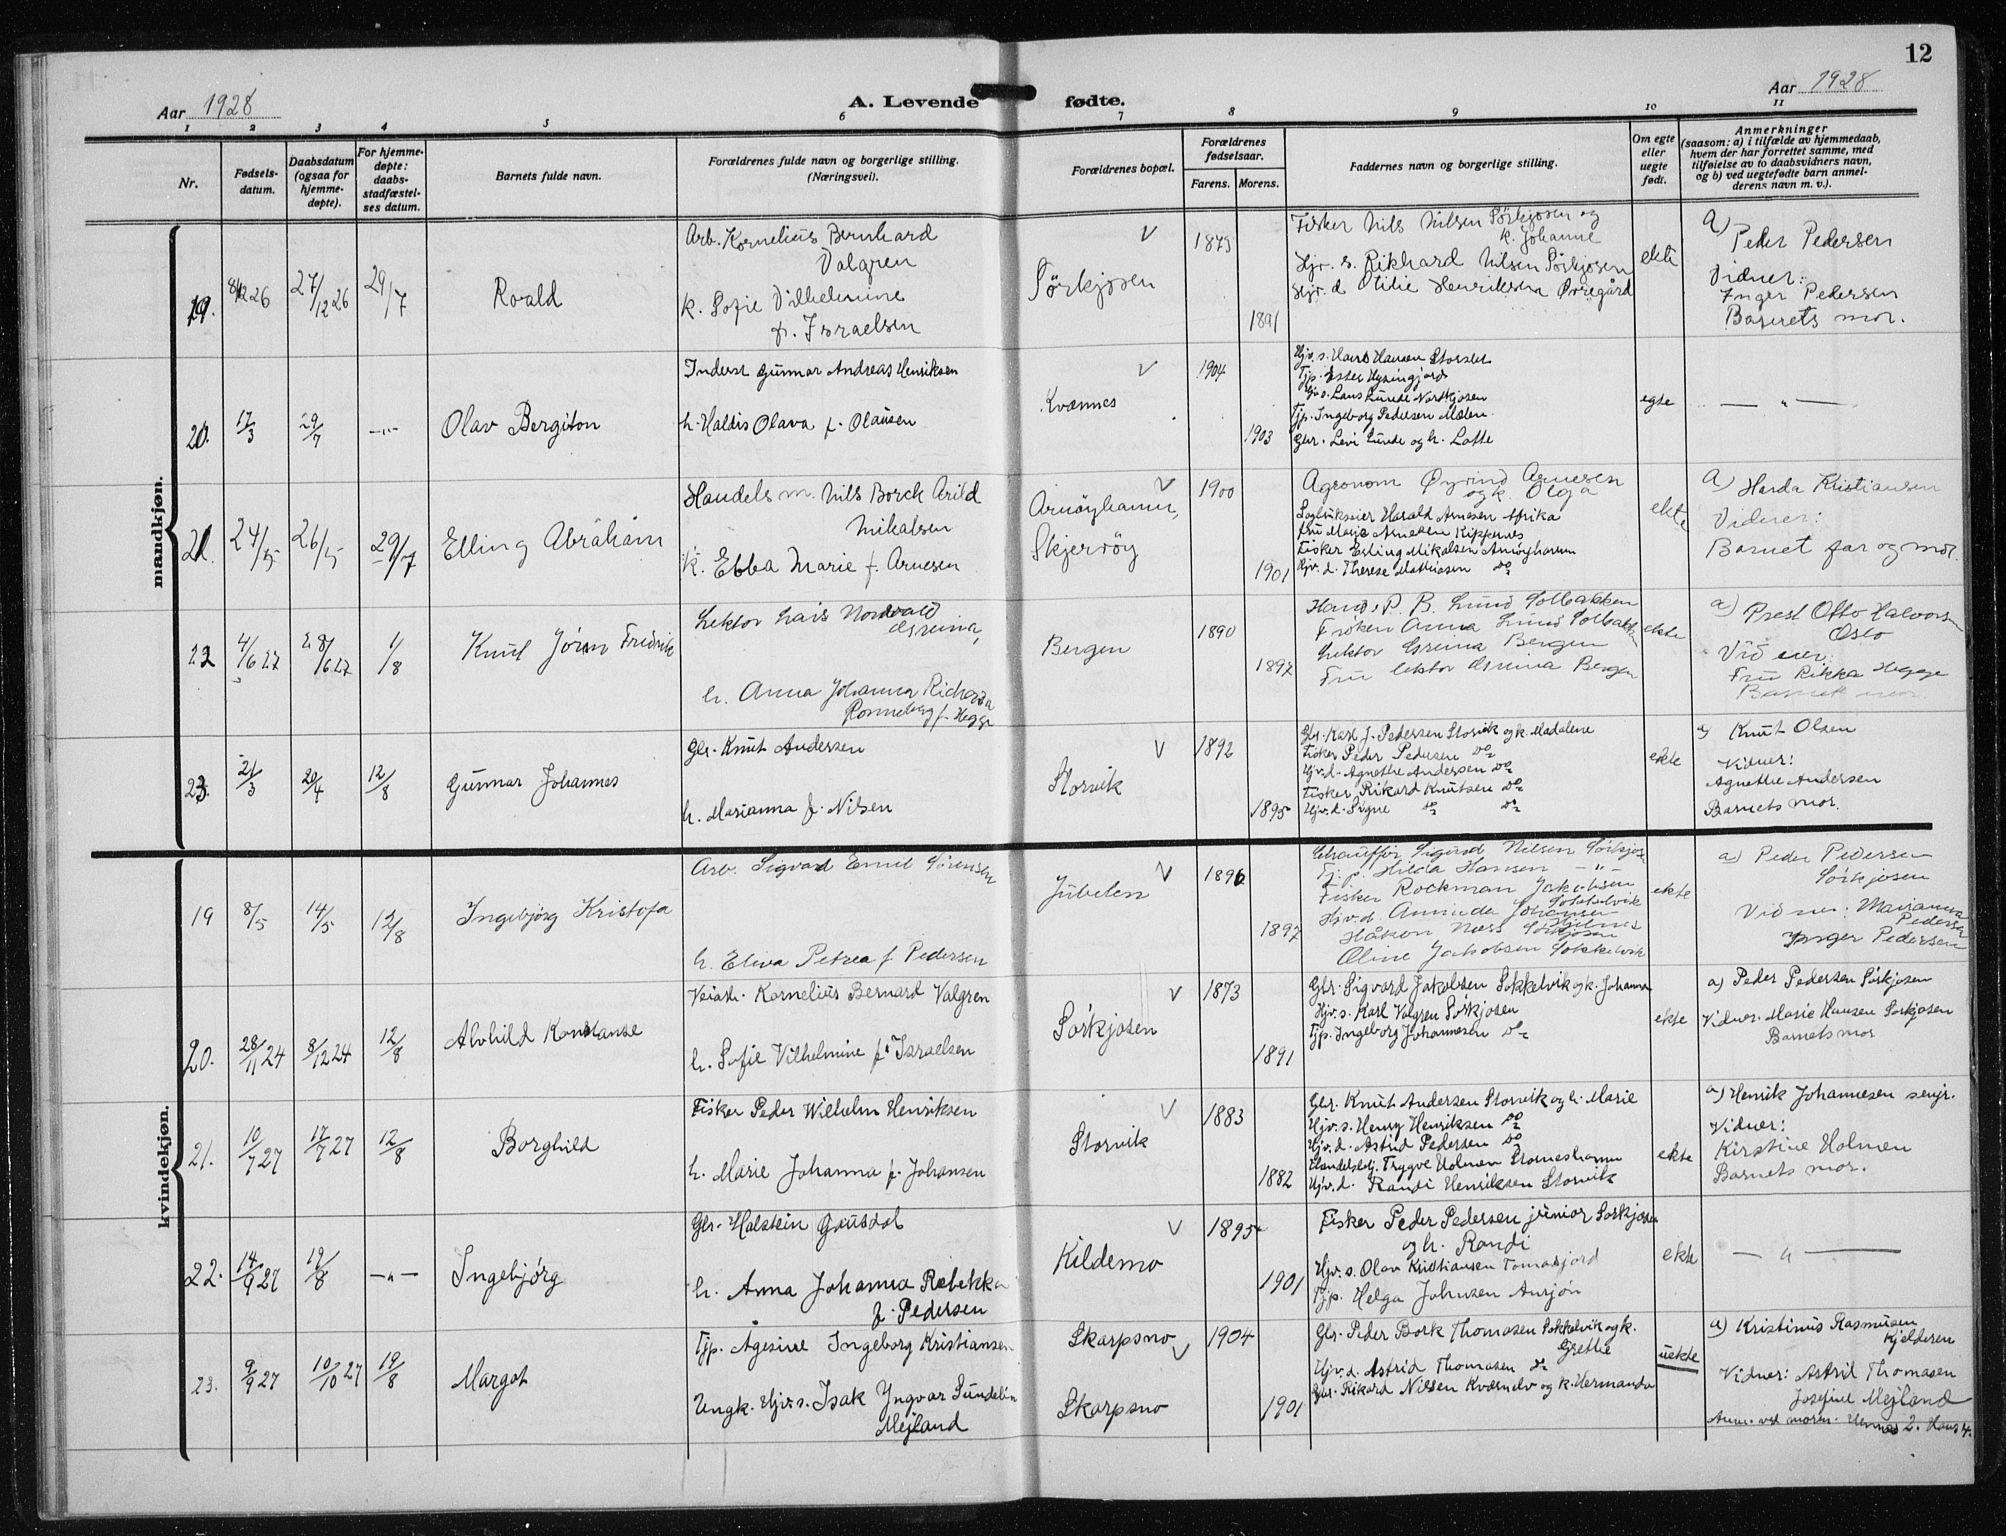 12
Aar 1928
A. Levende fødte.
Aar 1928
1 2 3 4 5 6 7 8 9 10 11
Nr.
Fødsels-
datum.
Daabsdatum
(ogsaa for
hjemme-
døpte).
For hjemme-
døpte:
daabs-
stadfæstel-
ses datum.
Barnets fulde navn.
Forældrenes fulde navn og borgerlige stilling.
(Næringsvei).
Forældrenes bopæl.
Forældrenes
fødselsaar.
Farens. Morens.
Faddernes navn og borgerlige stilling.
Om egte
eller
uegte
født.
Anmerkninger
(saasom: a) i tilfælde av hjemmedaab,
hvem der har forrettet samme, med
tilføielse av to daabsvidners navn,
og b) ved uegtefødte barn anmel-
derens navn m. v.).
mandkjøn.
19. 8/12 26 27/12 26 29/7
Roald
Arb. Kornelius Bernhard
Valgren
k. Sofie Vilhelmine
f. Israelsen
Sørkjosen
1873
1891
Fisker Nils Nilsen Sørkjosen og
k. Johanne
Hjv. s. Rikhard Nilsen Sørkjosen
Hjv. d. Otilie Henriksen Øvregård
ekte
a) Peder Pedersen
Vidner:
Inger Pedersen
Barnets mor.
20. 17/3 29/7 -"-
Olav Bergiton
Inderst Gunnar Andreas Henriksen
h. Haldis Olava f. Olausen
Kvænnes
1904
1903
Hjv. s. Hans Hansen Storslet
Tjp. Ester
Hjv. s. Lars Lunde Nordkjosen
Tjp. Ingeborg Pedersen Mælen
Gbr. Levi Lunde og h. Lotte
egte
— " —
21. 24/5 26/5 29/7
Elling Abraham
Handels m. Nils Borck Arild
Mikalsen
k. Ebba Marie f. Arnesen
Arnøyhamn,
Skjervøy
1900
1901
Agronom Øyvind Arnesen
og k. Olga
Harald Arnesen Afrika
Fru Marie Arnesen
Fisker Erling Mikalsen Arnøyhamn
Hjv. d. Therese Mathiasen do
ekte
a) Harda Kristiansen
Vidner:
Barnet far og mor.
22 4/6 27 28/6 27 1/8
Knut Jørn Fredrik
Lektor Lars Nordvald
Greina,
h. Anna Johanna Richarda
Ronneberg f. Hegge
Bergen
1890
1897
P. B. Lund Solbakken
Frøken Anna Lund Solbakk
Lektor Greina Bergen
Fru lektor Greina Bergen
ekte
a) Prest Otto Halvorsen
Oslo
Vidner
Fru Rikka Hegge
Barnets mor.
23. 21/3 20/4 12/8
Gunnar Johannes
Gbr. Knut Andersen
h. Marianna f. Nilsen
Storvik
1892
1895
Gbr. Karl J. Pedersen Storvik og k. Madalene
Fisker Peder Pedersen do
Hjv. d. Agnethe Andersen do
Fisker Rikard Knutsen do
Hjv. d. Signe do do
ekte
a) Knut Olsen
Vidner:
Agnethe Andersen
Barnets mor.
kvindekjøn.
19 8/5 14/5 12/8
Ingebjørg Kristofa
Arb. Sigvard Emil Sørensen
h. Eliva Petrea f. Pedersen
Jubelen
1896
1897
Chauffør Sigurd Nilsen Sørkjos
Tj. p. Hilda Hansen -"-
Fisker Rockman Jakobsen
Sokkelvik
Hjv. d. Johansen
Håkon Næss Sørkjosen
Oline Jakobsen Sokkelvik
ekte
a) Peder Pedersen
Sørkjosen
Vidner: Marianna
Pedersen
Inger Pedersen
20. 28/11 24 8/12 24 12/8
Alvhild Konstanse
Veiarb. Kornelius Bernard Valgren
h. Sofie Vilhelmine f. Israelsen
Sørkjosen
1873
1891
Gbr. Sigvard Jakobsen Sokkelvik og k. Johanna
Hjv. s. Karl Valgren Sørkjosen
Tjp. Ingeborg Johannesen do
ekte
a) Peder Pedersen Sørkjosen
Vidner: Marie Hansen Sørkjosen
Barnets mor
21. 10/7 27 17/7 27 12/8
Borghild
Fisker Peder Wilhelm Henriksen
h. Marie Johanna f. Johansen
Storvik
1883
1882
Gbr. Knut Andersen Storvik og h. Marie
Hjv. s. Henry Henriksen do
Hjv. d. Astrid Pedersen do
Handelsbetj. Trygve Holmen Storneshamn
Hjv. d. Randi Henriksen Storvik
ekte
a) Henrik Johannesen senjr.
Vidner:
Kirstine Holmen
Barnets mor.
22. 14/9 27 19/8 -"-
Ingebjørg
Gbr. Halstein Gausdal
h. Anna Johanna Rebekka
f. Pedersen
Kildemo
1895
1901
Fisker Peder Pedersen junior Sørkjosen
og h. Randi
Hjv. s. Olav Kristiansen Tomasjord
Tjp. Helga Johnsen Aursjøn
ekte
— " —
23. 9/9 27 10/10 27 19/8
Margot
Tjp. Agesine Ingeborg Kristiansen
Ungk. Hjv. s. Isak Yngvar Sundelin
Mejland
Skarpsno
Skarpsno
1904
1901
Gbr. Peder Bork Thomasen Sokkelvik og k.
Grethe
Hjv. d. Astrid Thomasen do
Gbr. Rikard Nilsen Kvænelv og k. Hermanda
uekte
a) Kristinus Rasmusen
Kjelderen
Vidner: Astrid Thomasen
Josefine Mejland
Anm. ved moren. Hennes 2. Hans 4.